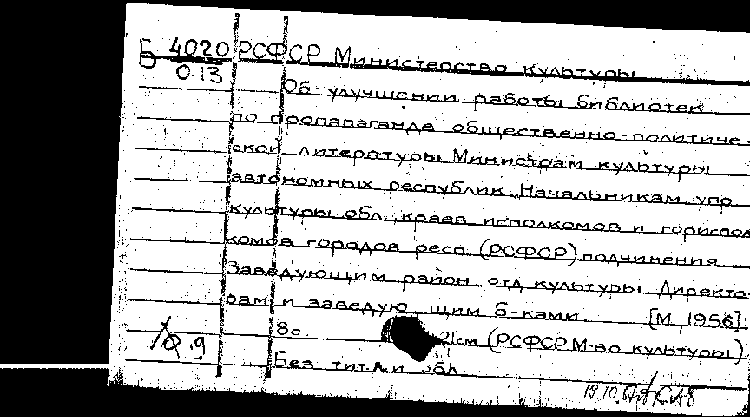 Б 4020 РСФСР Министерство культуры
0.13
Об улучшении работы библиотек
по пропаганде общественно-политиче-
ской литературы Министрам культуры
автономных республик, Начальникам упр.
культуры обл., краев. исполкомов и гориспол-
комов городов респ. (РСФСР) подчинения
Заведующим район. отд. культуры Директо-
рам и заведующим б-ками. [М. 1956].
8с. 21см (РСФСР. М-во культуры)
Без тит. л. и обл.